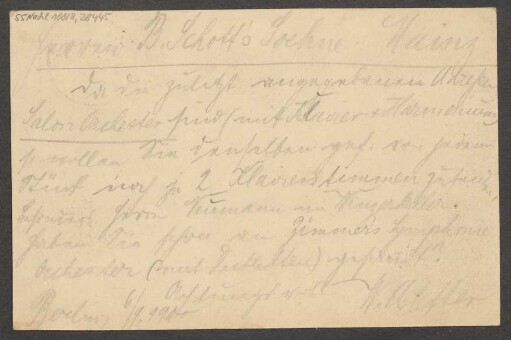 55 Nachl 100/B, 28445
Herren B. Schott's Soehne. Mainz
Da die zuletzt angegebenen Adressen
Salon Orchester sind (mit Klavier + Harmonium)
so wollen Sie denselben gef. von jedem
Stück noch je 2 Klavierstimmen zusenden,
besonders Herrn Neumann in
Haben Sie schon an Zimmers Symphonie
Orchester (mit) gesandt?
Achtungsvoll
Berlin 6/1. 1900